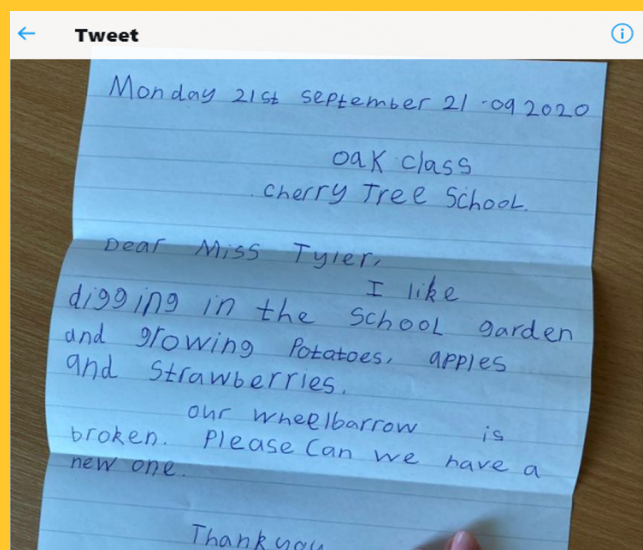 Tweet
Monday 21st September 21-09 2020
Oak Class
Cherry Tree School.
Dear Miss Tyler,
I like
digging in the School garden
and growing Potatoes, apples
and Strawberries.
our wheelbarrow is
broken. Please Can we have a
new one.
Thank you